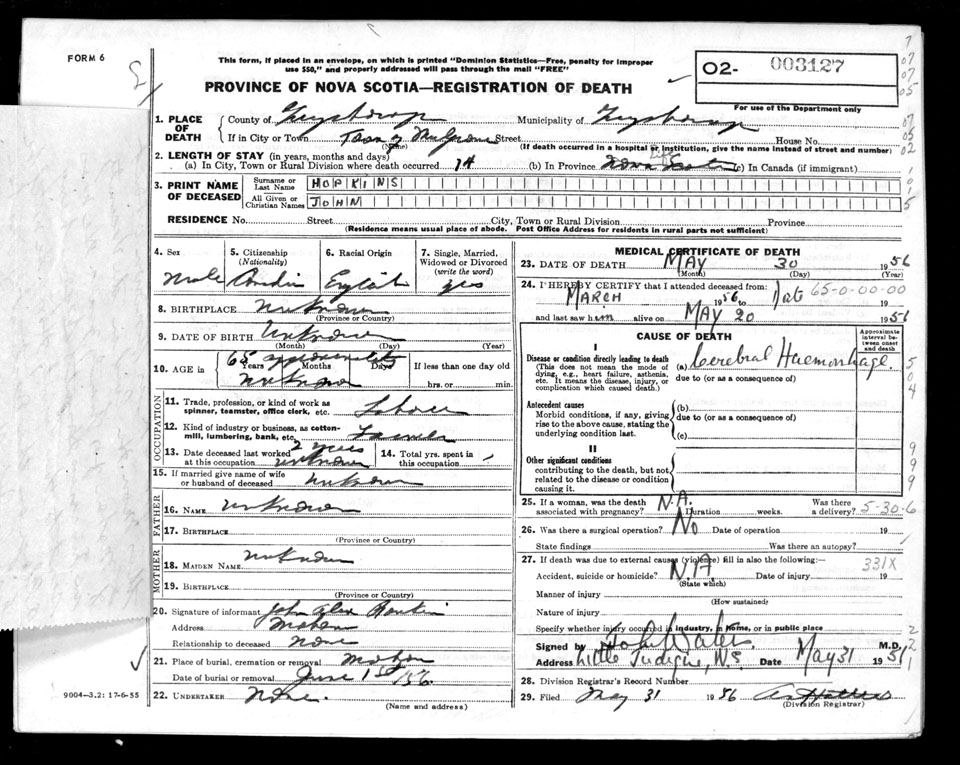 FORM 6
This form, if placed in an envelope, on which is printed "Dominion Statistics—Free, penalty for improper
use $50," and properly addressed will pass through the mail "FREE"
PROVINCE OF NOVA SCOTIA—REGISTRATION OF DEATH
02- 003127
For use of the Department only
1. PLACE OF DEATH
County of Municipality of
If in City or Town Town of Mulgrave Street House No.
(Name) (If death occurred in a hospital or institution, give the name instead of street and number)
2. LENGTH OF STAY (in years, months and days)
(a) In City, Town or Rural Division where death occurred 14 (b) In Province Life Nova Scotia (c) In Canada (if immigrant)
3. PRINT NAME OF DECEASED
Surname or Last Name HOPKINS
All Given or Christian Names JOHN
RESIDENCE No. Street City, Town or Rural Division Province
(Residence means usual place of abode. Post Office Address for residents in rural parts not sufficient)
4. Sex 5. Citizenship (Nationality) 6. Racial Origin 7. Single, Married, Widowed or Divorced (write the word)
Male English yes
8. BIRTHPLACE unknown
(Province or Country)
9. DATE OF BIRTH unknown
(Month) (Day) (Year)
10. AGE in 65 approximately
Years Months Days If less than one day old
unknown hrs. or min.
OCCUPATION
11. Trade, profession, or kind of work as
spinner, teamster, office clerk, etc.
12. Kind of industry or business, as cotton-
mill, lumbering, bank, etc.
13. Date deceased last worked at this occupation 2 years unknown 14. Total yrs. spent in this occupation
15. If married give name of wife
or husband of deceased unknown
FATHER
16. NAME unknown
17. BIRTHPLACE
(Province or Country)
MOTHER
18. MAIDEN NAME unknown
19. BIRTHPLACE
(Province or Country)
20. Signature of informant John
Address
Relationship to deceased none
21. Place of burial, cremation or removal
Date of burial or removal June 1st/56
22. UNDERTAKER None.
(Name and address)
9004—3,2: 17-6-55
MEDICAL CERTIFICATE OF DEATH
23. DATE OF DEATH MAY 30 1956
(Month) (Day) (Year)
24. I HEREBY CERTIFY that I attended deceased from: 65-0-00-00
MARCH 1956 to Date 19
and last saw him alive on MAY 20 1956
CAUSE OF DEATH
Approximate interval between onset and death
I
Disease or condition directly leading to death
(This does not mean the mode of
dying, e.g., heart failure, asthenia,
etc. It means the disease, injury, or
complication which caused death.)
(a) Cerebral Haemorrhage.
due to (or as a consequence of)
Antecedent causes
Morbid conditions, if any, giving
rise to the above cause, stating the
underlying condition last.
(b)
due to (or as a consequence of)
(c)
II
Other significant conditions
contributing to the death, but not
related to the disease or condition
causing it.
25. If a woman, was the death
associated with pregnancy? N.A. Duration weeks. Was there a delivery? 5-30-6
26. Was there a surgical operation? No Date of operation 19
State findings Was there an autopsy?
27. If death was due to external causes (violence) fill in also the following:— 331X
Accident, suicide or homicide? N.A. Date of injury 19
(State which)
Manner of injury
(How sustained)
Nature of injury
Specify whether injury occurred in industry, in home, or in public place
Signed by M.D.
Address Little N.S. Date May 31 195
28. Division Registrar's Record Number
29. Filed May 31 1956
(Division Registrar)